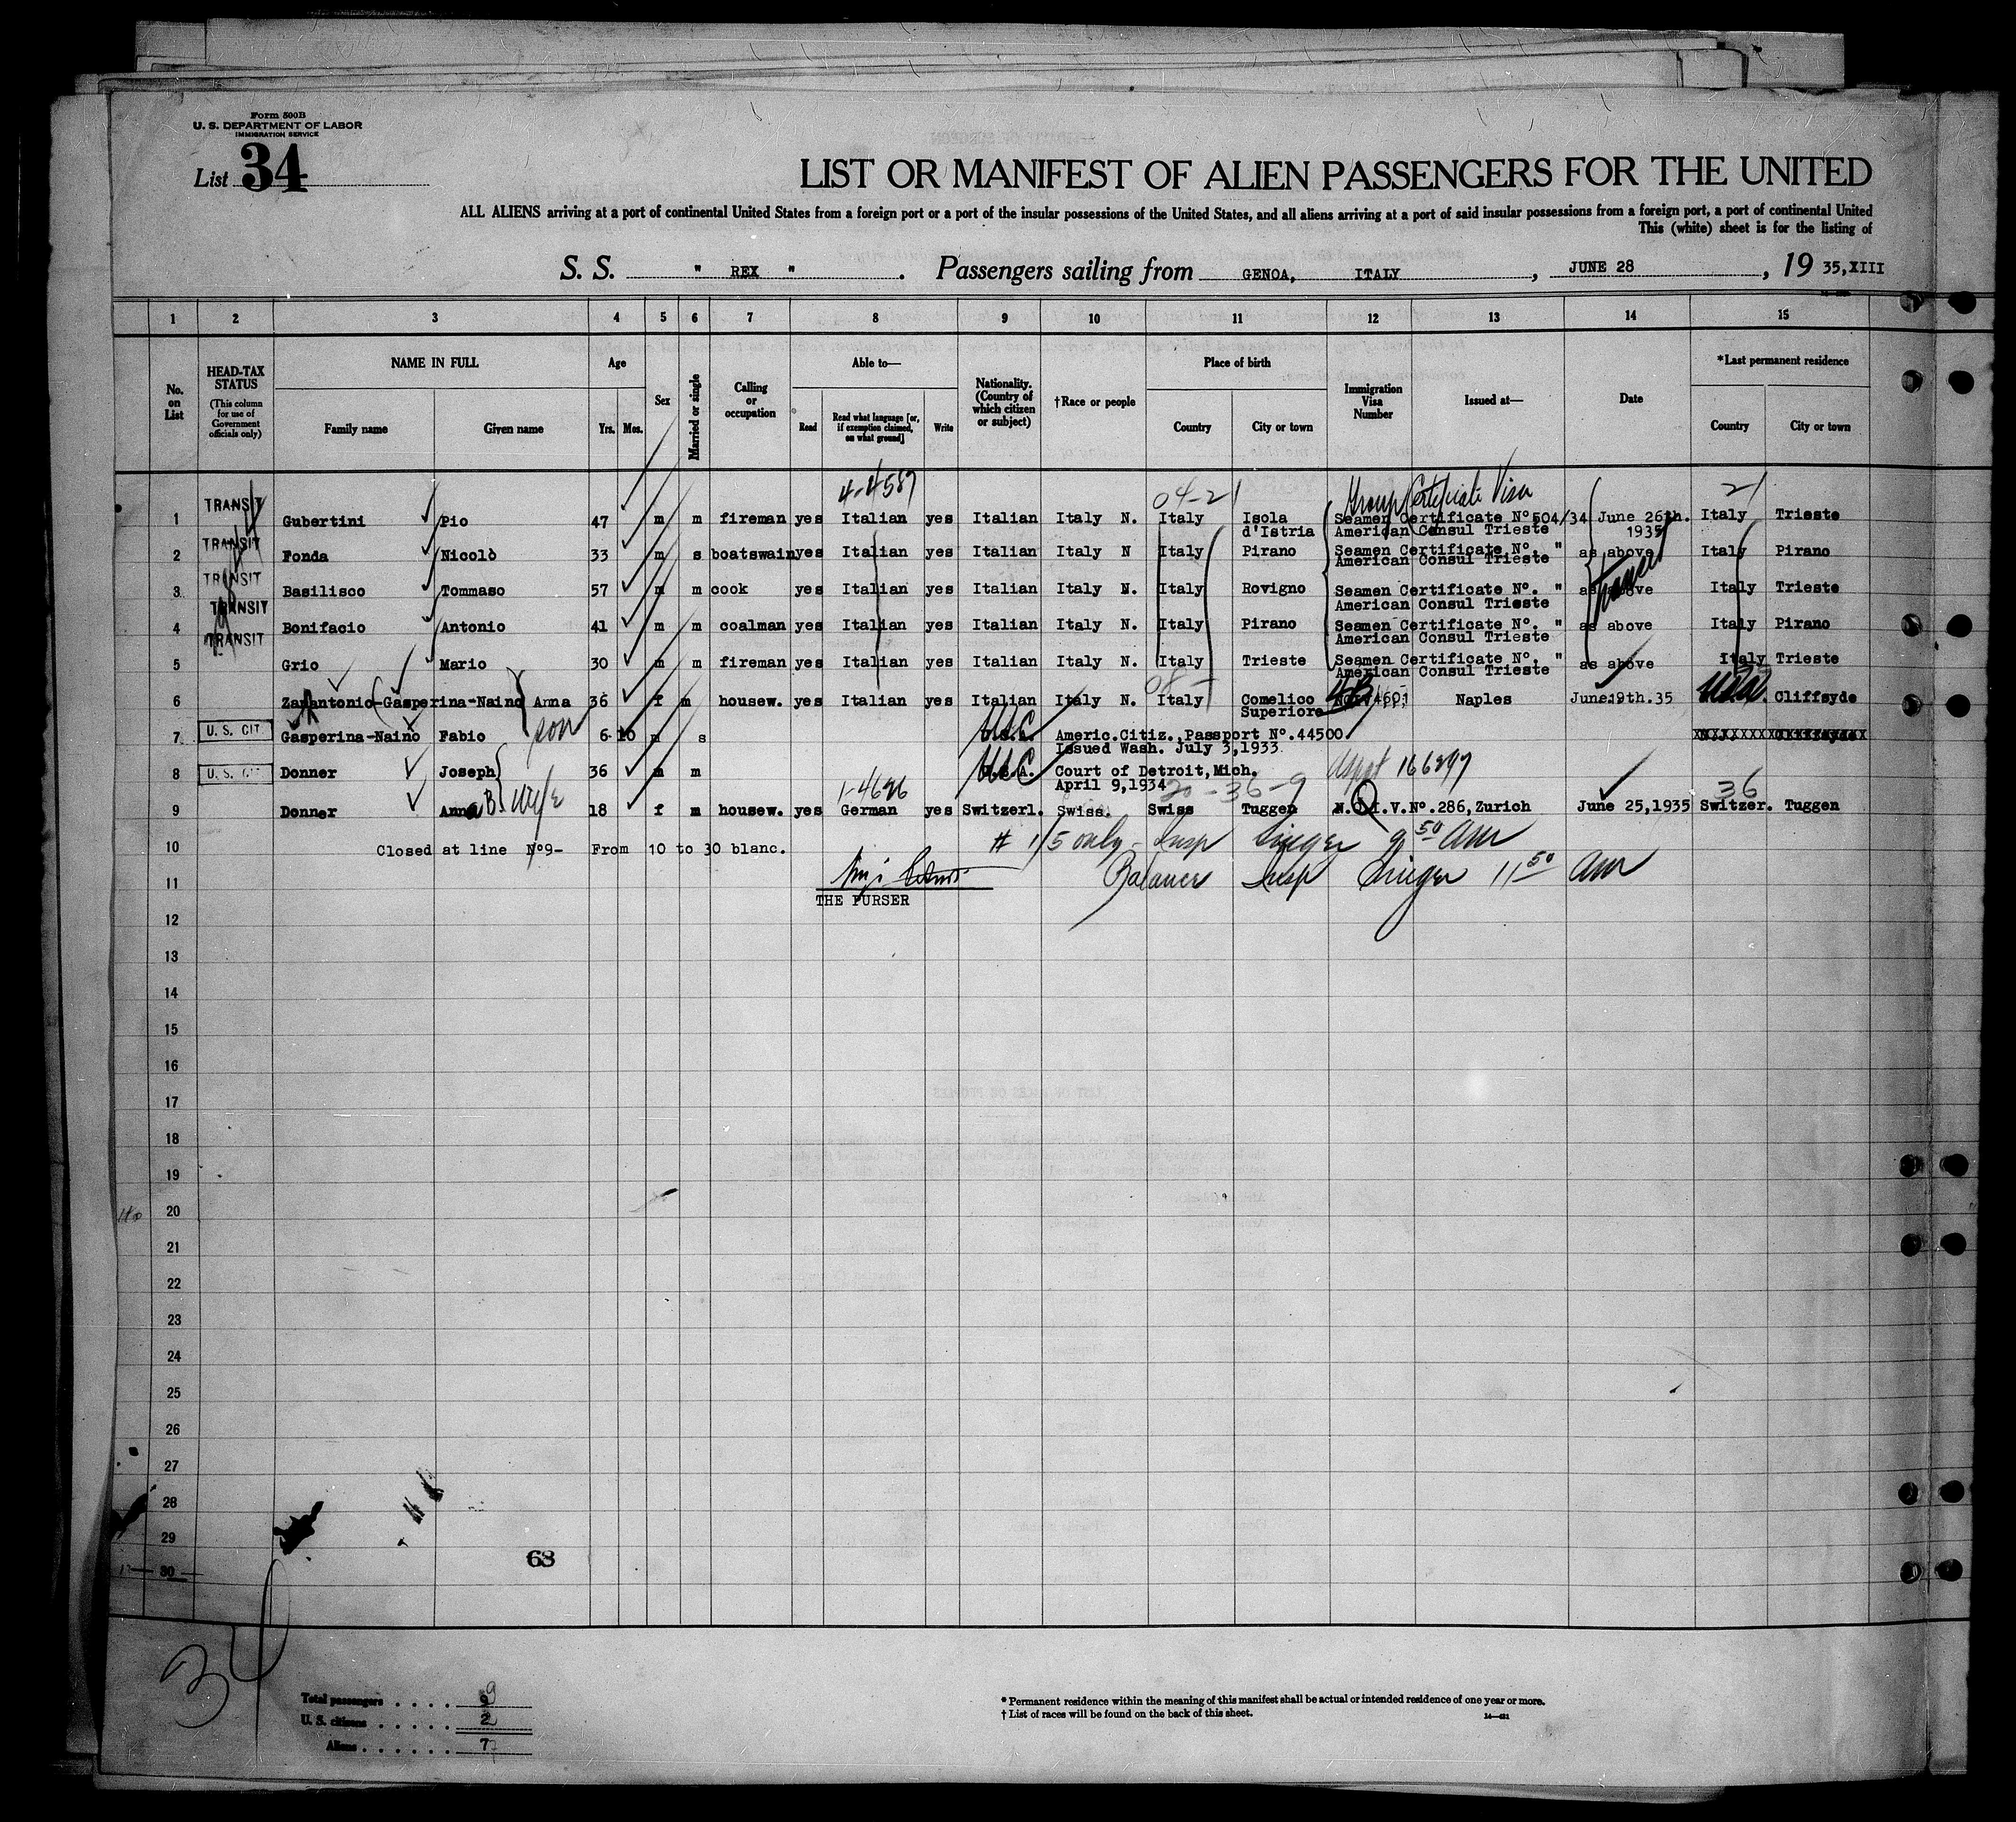 Form 500B
U. S. DEPARTMENT OF LABOR
IMMIGRATION SERVICE
List 34
LIST OR MANIFEST OF ALIEN PASSENGERS FOR THE UNITED
ALL ALIENS arriving at a port of continental United States from a foreign port or a port of the insular possessions of the United States, and all aliens arriving at a port of said insular possessions from a foreign port, a port of continental United
This (white) sheet is for the listing of
S. S. " REX " . Passengers sailing from GENOA, ITALY , JUNE 28 , 19 35,XIII
1 2 3 4 5 6 7 8 9 10 11 12 13 14 15
No. on List
HEAD-TAX STATUS
(This column for use of Government officials only)
NAME IN FULL
Family name Given name
Age
Yrs. Mos.
Sex
Married or single
Calling or occupation
Able to—
Read Read what language [or, if exemption claimed, on what ground] Write
Nationality. (Country of which citizen or subject)
†Race or people
Place of birth
Country City or town
Immigration Visa Number
Issued at—
Date
*Last permanent residence
Country City or town
4-4587 04-21 Group Certificate Visa 21
TRANSIT
1 Gubertini Pio 47 m m fireman yes Italian yes Italian Italy N. Italy Isola Seamen Certificate Nº504/34 June 26th. Italy Trieste
d'Istria American Consul Trieste 1935
TRANSIT
2 Fonda Nicolò 33 m s boatswain yes Italian yes Italian Italy N Italy Pirano Seamen Certificate Nº. " as above Italy Pirano
American Consul Trieste
TRANSIT
3 Basilisco Tommaso 57 m m cook yes Italian yes Italian Italy N. Italy Rovigno Seamen Certificate Nº. " as above Italy Trieste
TRANSIT American Consul Trieste
4 Bonifacio Antonio 41 m m coalman yes Italian yes Italian Italy N. Italy Pirano Seamen Certificate Nº. " as above Italy Pirano
TRANSIT American Consul Trieste
5 Grio Mario 30 m m fireman yes Italian yes Italian Italy N. Italy Trieste Seamen Certificate Nº. " as above Italy Trieste
American Consul Trieste
08-
6 Zanantonio-Gasperina-Naino Anna 36 f m housew. yes Italian yes Italian Italy N. Italy Comelico 4B Naples June.19th.35 USA. Cliffsyde
Superiore
son
7 U. S. CIT Gasperina-Naino Fabio 6-10 m s U.S.C. Americ.Citiz.,Passport Nº.44500
Issued Wash. July 3,1933
8 U. S. CIT Donner Joseph 36 m m U.S.A. Court of Detroit,Mich. 166297
April 9,1934
wife 1-4626 20-36-9 36
9 Donner Anna B 18 f m housew. yes German yes Switzerl. Swiss. Swiss Tuggen N.Q.I.V.Nº.286,Zurich June 25,1935 Switzer. Tuggen
10 Closed at line Nº9- From 10 to 30 blanc. # 1/5 only - Insp Singer 9 50 AM
11 Balance Insp Singer 11 50 AM
THE PURSER
12
13
14
15
16
17
18
19
20
21
22
23
24
25
26
27
28
29
63
30
34
Total passengers . . . . 9
U. S. citizens . . . . . 2
Aliens . . . . . . 7
* Permanent residence within the meaning of this manifest shall be actual or intended residence of one year or more.
† List of races will be found on the back of this sheet.